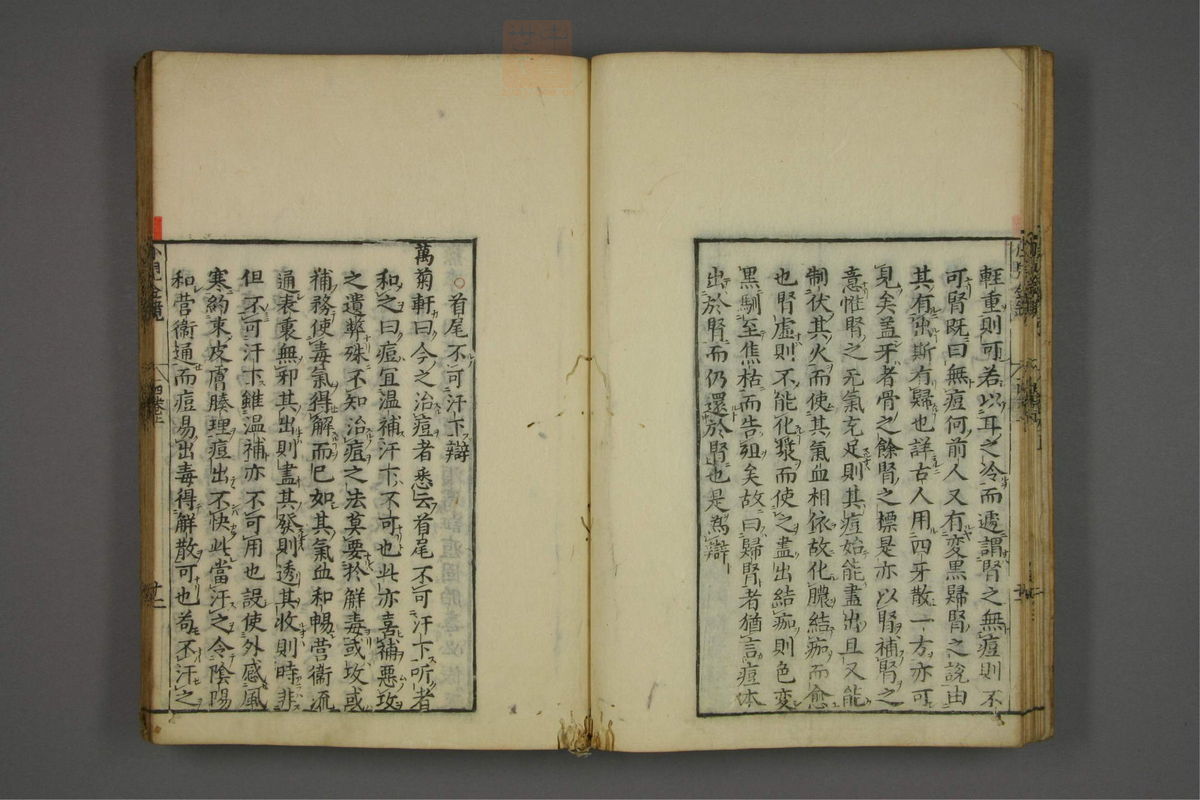 軽重則可若以耳之冷而遽謂腎之無痘則不
可腎既曰無痘何前人又有変黒歸腎之説由
其有出斯有歸也詳古人用四牙散一方亦可
見矣盖牙者骨之餘腎之標是亦以腎補腎之
意惟腎之元氣充足則其痘始能盡出且又能
制伏其火而使其氣血相依故化膿結痂而愈
也腎虚則不能化漿而使之盡出結痂則色変
黒馴至焦枯而告殂矣故曰歸腎者猶言痘本
出於腎而仍還於腎也是為辯
○首尾不可汗下辯
萬菊軒曰今之治痘者悉云首尾不可汗下听者
和之曰痘宜温補汗下不可也此亦喜補惡攻
之遺弊殊不知治痘之法莫要於解毒或攻或
補務使毒氣得解而已如其氣血和暢営衛流
通表裏無邪其出則盡其發則透其收則時非
但不可汗下雖温補亦不可用也設使外感風
寒約束皮膚腠理痘出不快此當汗之令陰陽
和営衛通而痘易出毒得解散可也苟不汗之